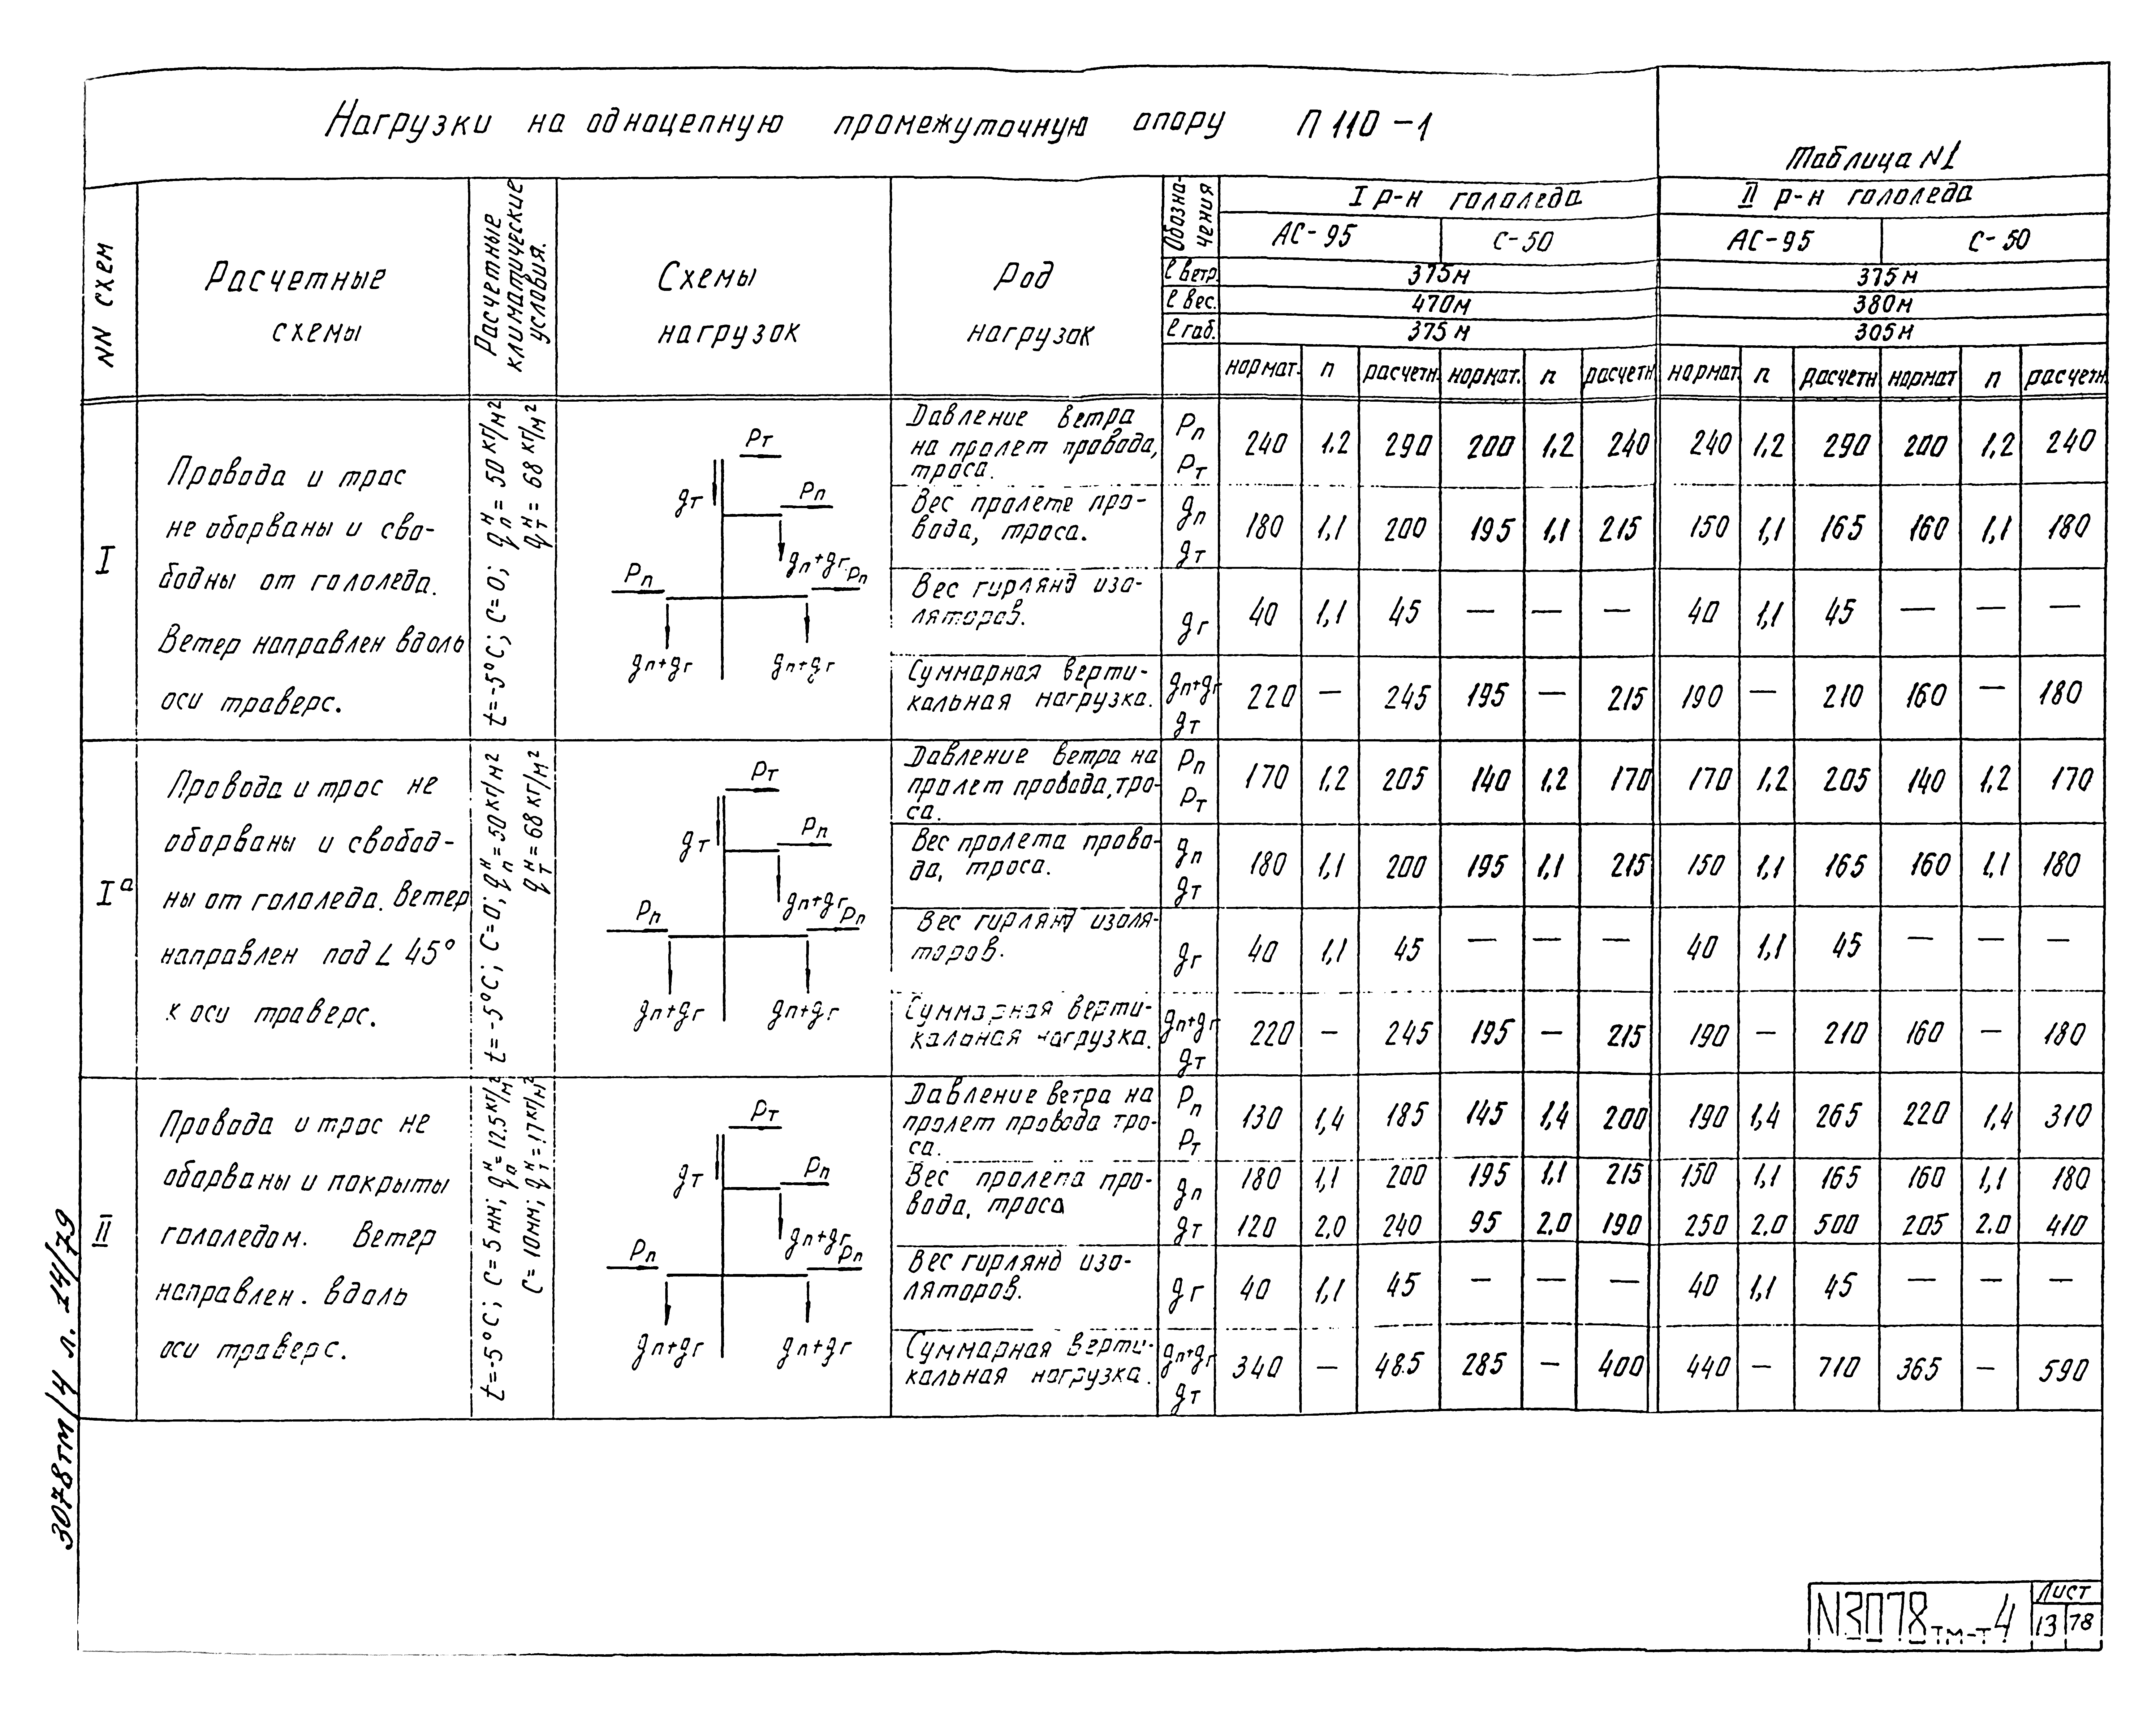 Нагрузки на одноцепную промежуточную опору П 110-1
Таблица N1
NN схем
Расчетные
схемы
Расчетные
климатические
условия.
Схемы
нагрузок
Род
нагрузок
Обозна-
чения
I р-н гололеда
II р-н гололеда
АС-95 С-50 АС-95 С-50
ℓ ветр. 375м 375м
ℓ вес. 470м 380м
ℓ габ. 375м 305м
нормат. n расчетн. нормат. n расчетн. нормат. n расчетн. нормат n расчетн.
I
Провода и трос
не оборваны и сво-
бодны от гололеда.
Ветер направлен вдоль
оси траверс.
t=-5°C; C=0; qпᴴ= 50 кг/м²
qтᴴ= 68 кг/м²
Pт
gт
Pп
gп+gг
Pп
Pп
gп+gг
gп+gг
Давление ветра
на пролет провода,
троса.
Pп
Pт
240 1.2 290 200 1,2 240 240 1,2 290 200 1,2 240
Вес пролете про-
вода, троса.
gп
gт
180 1,1 200 195 1,1 215 150 1,1 165 160 1,1 180
Вес гирлянд изо-
ляторов.
gг
40 1,1 45 — — — 40 1,1 45 — — —
Суммарная верти-
кальная нагрузка.
gп+gг
gт
220 — 245 195 — 215 190 — 210 160 — 180
Iа
Провода и трос не
оборваны и свобод-
ны от гололеда. Ветер
направлен под ∠ 45°
к оси траверс.
t=-5°C; C=0; qпᴴ=50кг/м²
qтᴴ=68 кг/м²
Pт
gт
Pп
gп+gг
Pп
Pп
gп+gг
gп+gг
Давление ветра на
пролет провода, тро-
са.
Pп
Pт
170 1,2 205 140 1.2 170 170 1,2 205 140 1,2 170
Вес пролета прово-
да, троса.
gп
gт
180 1,1 200 195 1,1 215 150 1,1 165 160 1,1 180
Вес гирлянд изоля-
торов.
gг
40 1,1 45 — — — 40 1,1 45 — — —
Суммарная верти-
кальная нагрузка.
gп+gг
gт
220 — 245 195 — 215 190 — 210 160 — 180
II
Провода и трос не
оборваны и покрыты
гололедом. Ветер
направлен. вдоль
оси траверс.
t=-5°C; C=5мм; qпᴴ=12.5кг/м²
C=10мм; qтᴴ=17кг/м²
Pт
gт
Pп
gп+gг
Pп
Pп
gп+gг
gп+gг
Давление ветра на
пролет провода тро-
са.
Pп
Pт
130 1,4 185 145 1,4 200 190 1,4 265 220 1,4 310
Вес пролета про-
вода, троса
gп
180 1,1 200 195 1,1 215 150 1,1 165 160 1,1 180
gт
120 2,0 240 95 2.0 190 250 2.0 500 205 2.0 410
Вес гирлянд изо-
ляторов.
gг
40 1,1 45 — — — 40 1,1 45 — — —
Суммарная верти-
кальная нагрузка.
gп+gг
gт
340 — 485 285 — 400 440 — 710 365 — 590
3078тм/4 л. 14/79
N3078тм-т4
Лист
13 78